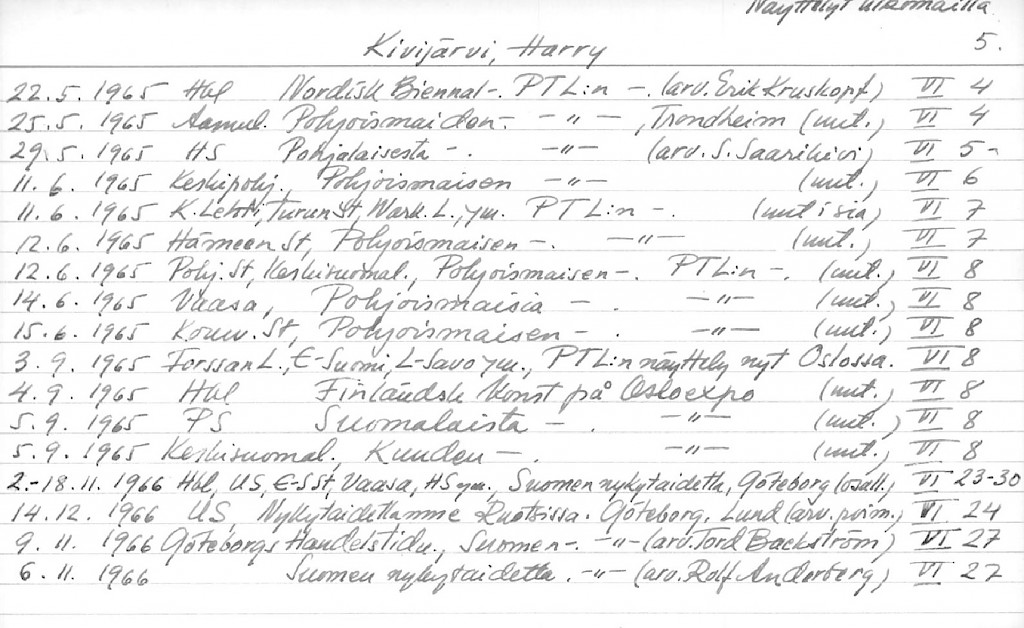 Näyttelyt ulkomailla
5.
Kivijärvi, Harry
22.5.1965 Hbl Nordisk Biennal-. PTL:n -. (arv. Erik Kruskopf) VI 4
25.5.1965 Aamul. Pohjoismaiden-. -"- , Trondheim (uut.) VI 4
29.5.1965 HS Pohjalaisesta -. -"- (arv. S. Saarikivi) VI 5-
11.6.1965 Keskipohj., Pohjoismaisen -"- (uut.) VI 6
11.6.1965 K. Lehti, Turun St, Wark. L., ym. PTL:n -. (uutisia) VI 7
12.6.1965 Hämeen St, Pohjoismaisen -. -"- (uut.) VI 7
12.6.1965 Pohj. St, Keskisuomal., Pohjoismaisen-. PTL:n -. (uut.) VI 8
14.6.1965 Vaasa, Pohjoismaisia - -"- (uut.) VI 8
15.6.1965 Kouv. St, Pohjoismaisen - . -"- (uut.) VI 8
3.9.1965 Forssan L., E-Suomi, L-Savo ym., PTL:n näyttely nyt Oslossa. VI 8
4.9.1965 Hbl Finländsk konst på Osloexpo (uut.) VI 8
5.9.1965 PS Suomalaista - . -"- (uut.) VI 8
5.9.1965 Keskisuomal., Kuuden -. -"- (uut.) VI 8
2.-18.11.1966 Hbl, US, E-S St, Vaasa, HS ym., Suomen nykytaidetta, Göteborg (osall.) VI 23-30
14.12.1966 US, Nykytaidettamme Ruotsissa. Göteborg, Lund (arv. poim.) VI 24
9.11.1966 Göteborgs Handelstidn., Suomen-. -"- (arv. Tord Baeckström) VI 27
6.11.1966 Suomen nykytaidetta. -"- (arv. Rolf Anderberg) VI 27